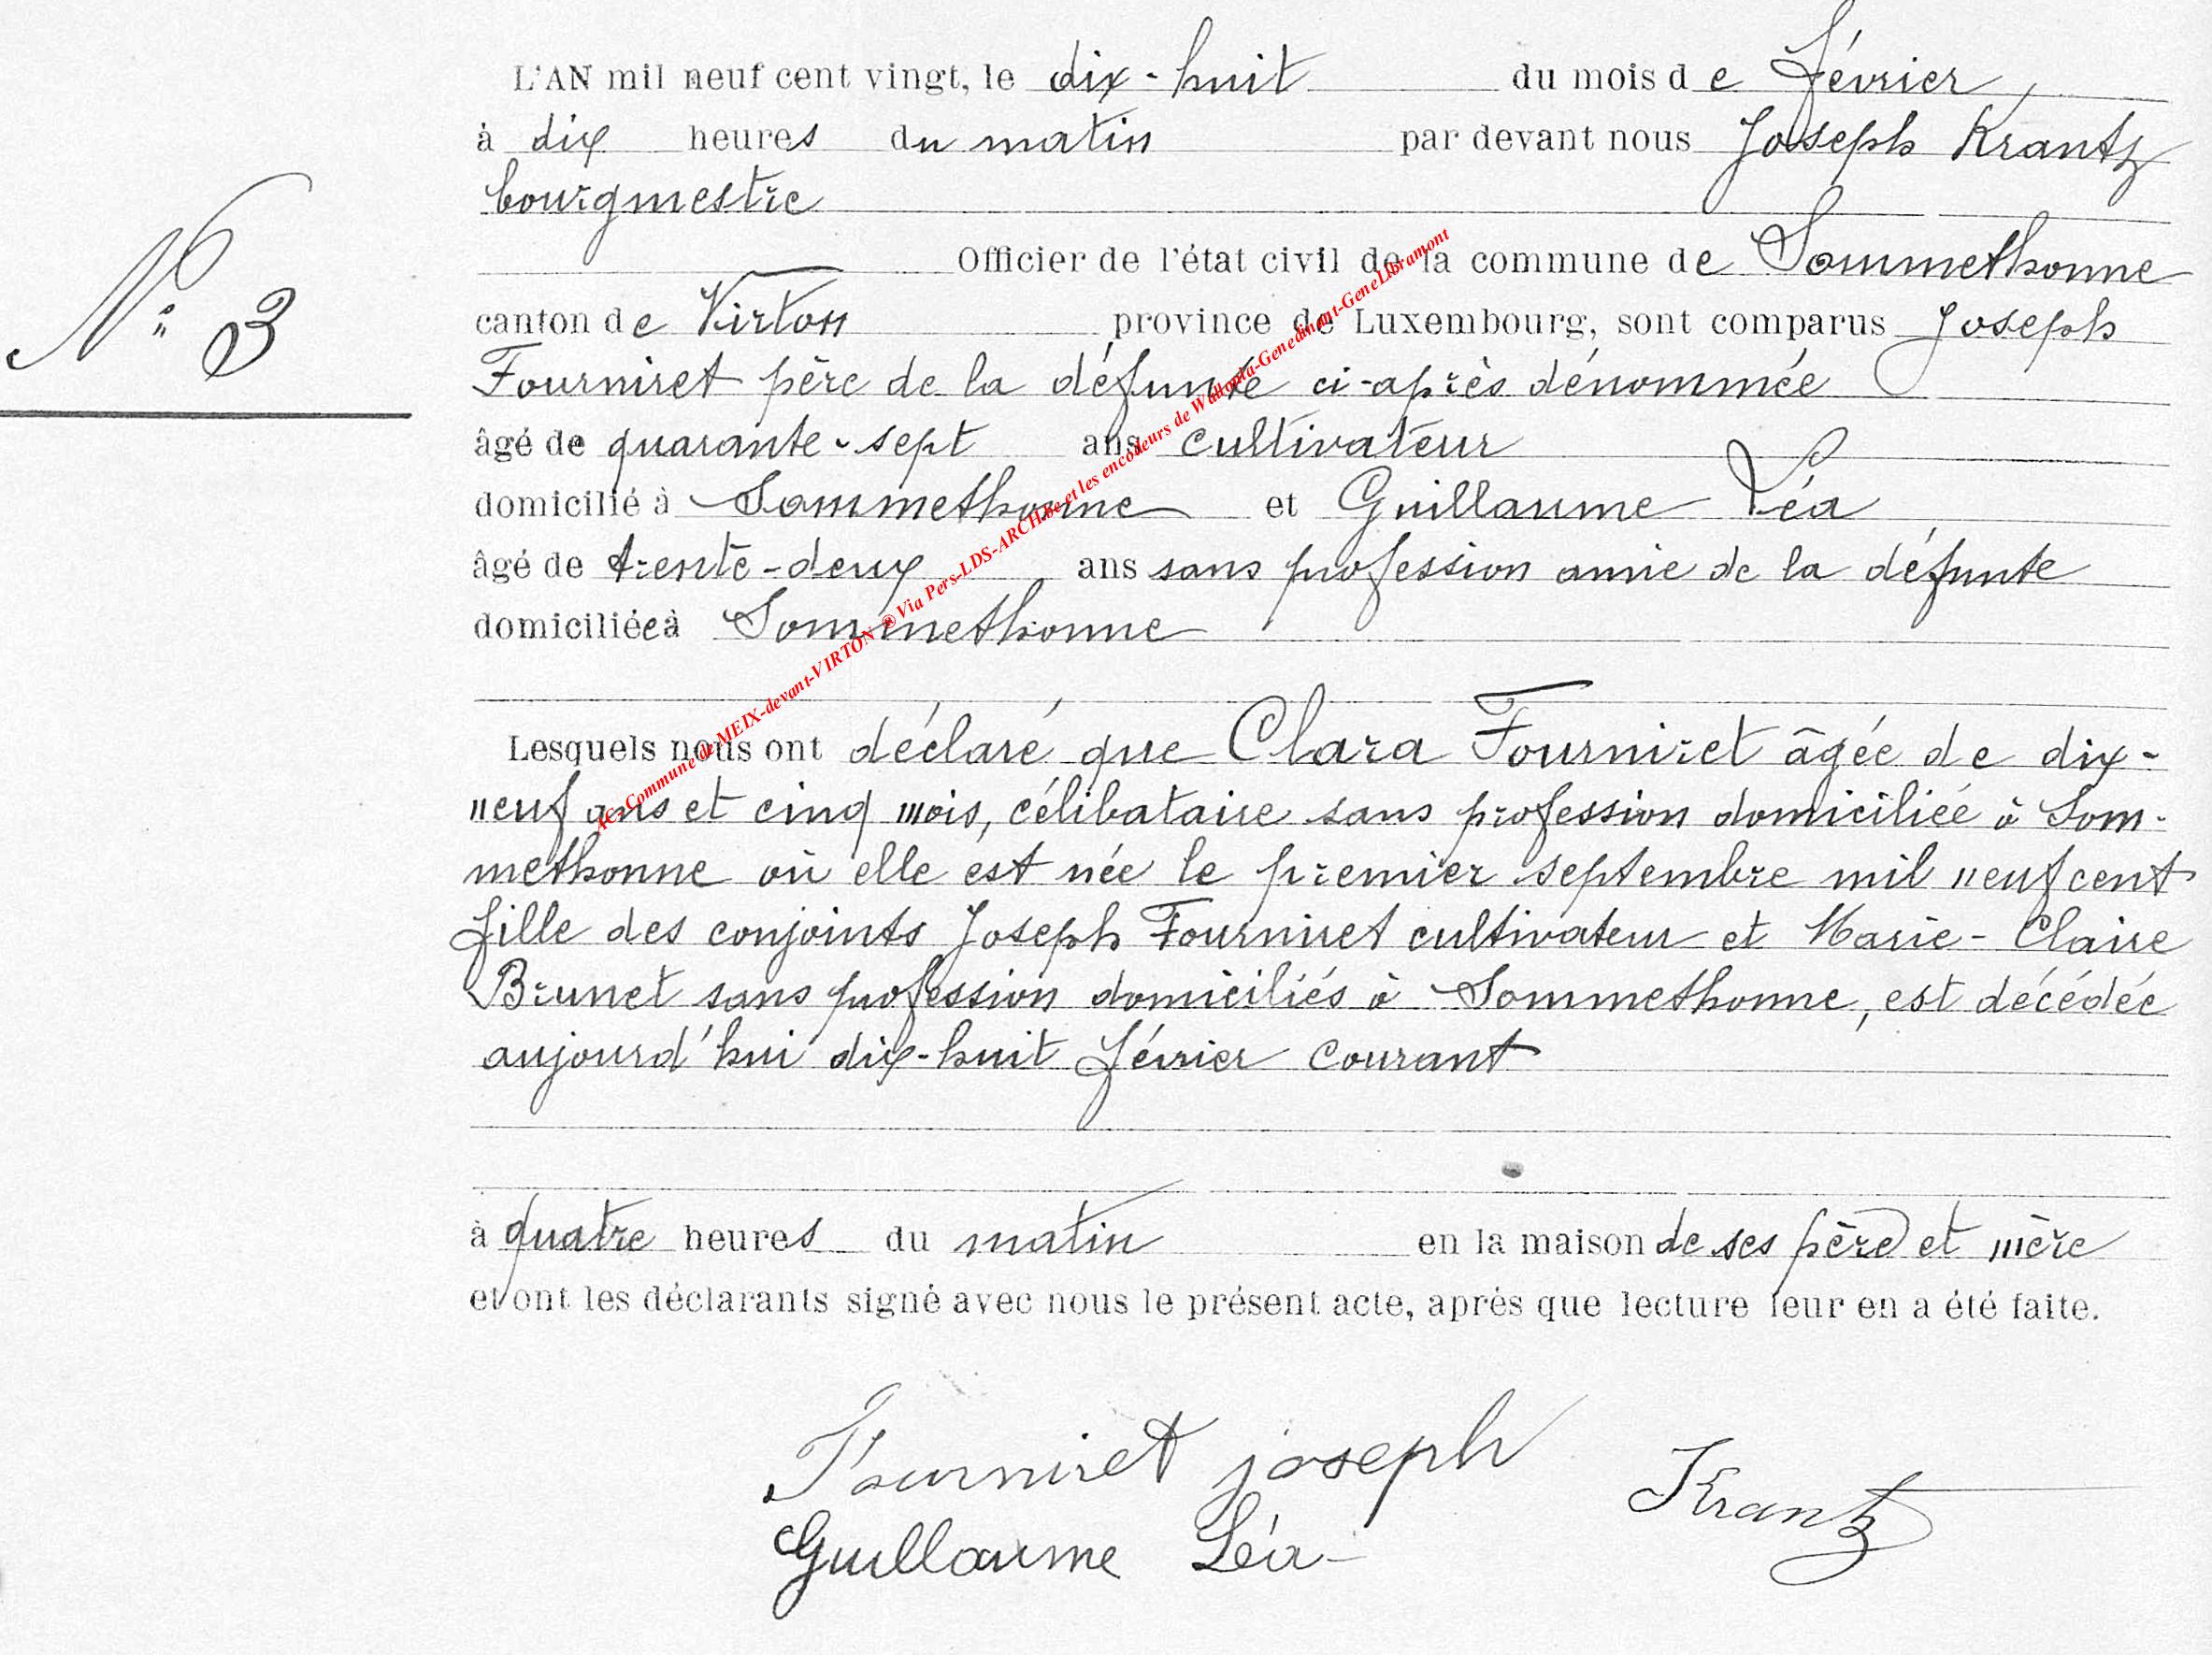 L'AN mil neuf cent vingt, le dix-huit du mois de février,
à dix heures du matin par devant nous Joseph Krantz
bourgmestre
Officier de l'état civil de la commune de Sommethonne
N° 3
canton de Virton province de Luxembourg, sont comparus Joseph
Fourniret père de la défunte ci-après dénommée
âgé de quarante-sept ans cultivateur
domicilié à Sommethonne et Guillaume Léa
âgé de trente-deux ans sans profession amie de la défunte
domiciliée à Sommethonne
Lesquels nous ont déclaré que Clara Fourniret âgée de dix-
neuf ans et cinq mois, célibataire sans profession domiciliée à Som-
methonne où elle est née le premier septembre mil neuf cent
fille des conjoints Joseph Fourniret cultivateur et Marie-Claire
Brunet sans profession domiciliés à Sommethonne, est décédée
aujourd'hui dix-huit février courant
à quatre heures du matin en la maison de ses père et mère
et ont les déclarants signé avec nous le présent acte, après que lecture leur en a été faite.
Fourniret joseph
Krantz
Guillaume Léa
AC-Commune de MEIX-devant-VIRTON ® Via Pers-LDS-ARCH.be et les encodeurs de Wallonia-Genedinant-GeneLibramont